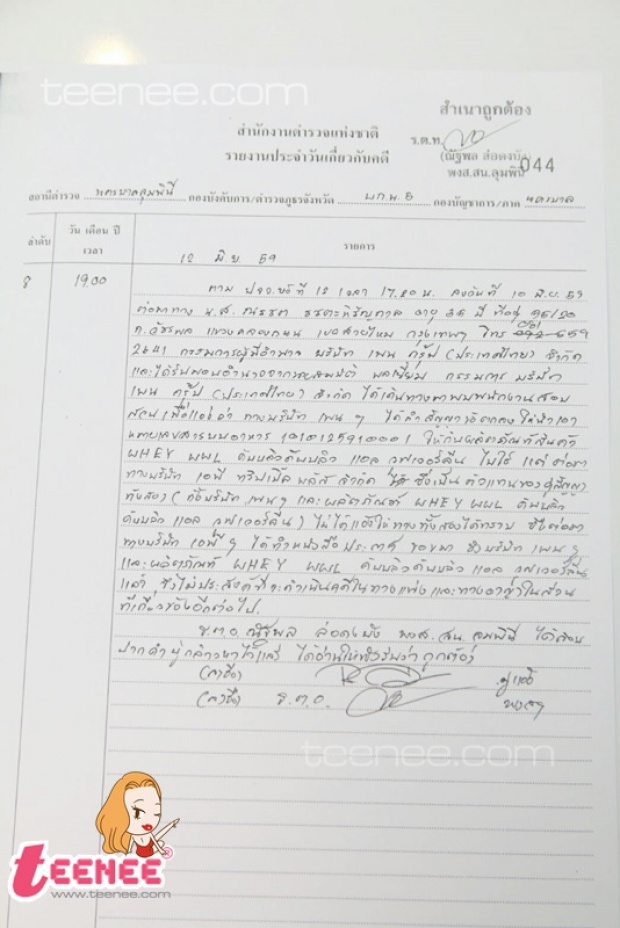 teenee.com
สำเนาถูกต้อง
สำนักงานตำรวจแห่งชาติ
ร.ต.ท.
รายงานประจำวันเกี่ยวกับคดี
(ณัฐพล ส่อดงบัง
044
พงส.สน.ลุมพินี
สถานีตำรวจ นครบาลลุมพินี กองบังคับการ/ตำรวจภูธรจังหวัด บก.น.5 กองบัญชาการ/ภาค นครบาล
ลำดับ
วัน เดือน ปี
เวลา
รายการ
12 มิ.ย. 59
8 19.00
ตาม ปจว.ข้อที่ 12 เวลา 17.20 น. ลงวันที่ 10 มิ.ย. 59
ต่อมาทาง น.ส. อายุ 36 ปี ที่อยู่ 96/20
ถ.วัชรพล แขวงคลองถนน เขตสายไหม กรุงเทพฯ โทร 659
2641 กรรมการผู้มีอำนาจ บริษัท เพน กรุ๊ป (ประเทศไทย) จำกัด
และได้รับมอบอำนาจจาก กรรมการ บริษัท
เพน กรุ๊ป (ประเทศไทย) จำกัด ได้เดินทางมาพบพนักงานสอบ
สวนเพื่อแจ้งว่า ทางบริษัท เพน ฯ ได้ทำสัญญาข้อตกลง ให้นำเอา
หมายเลขสารบบอาหาร 1010125910001 ให้กับผลิตภัณฑ์สินค้า
WHEY WWL ดับบลิวดับบลิว แอล เวย์เวอร์คลีน ไปใช้ แต่ ต่อมา
ทางบริษัท เอพี ทริปเปิ้ล พลัส จำกัด ซึ่งเป็น ตัวแทนของคู่สัญญา
ทั้งสอง (ทั้งบริษัท เพนฯ และผลิตภัณฑ์ WHEY WWL ดับบลิว
ดับบลิว แอล เวย์เวอร์คลีน) ไม่ได้แจ้งให้ทางทั้งสองได้ทราบ ซึ่งต่อมา
ทางบริษัท เอพี ฯ ได้ทำหนังสือ ประกาศ ขอขมา ทั้งบริษัท เพน ฯ
และผลิตภัณฑ์ WHEY WWL ดับบลิวดับบลิว แอล เวย์เวอร์คลีน
แล้ว จึงไม่ประสงค์ที่จะดำเนินคดีในทางแพ่งและทางอาญาในส่วน
ที่เกี่ยวข้องอีกต่อไป.
ร.ต.อ. ณัฐพล ส่อดงบัง พงส. สน.ลุมพินี ได้สอบ
ปากคำผู้กล่าวหาไว้แล้ว ได้อ่านให้ฟังรับว่าถูกต้อง
(ลงชื่อ) ผู้แจ้ง
(ลงชื่อ) ร.ต.อ. พงสฯ
teenee.com
teenee
www.teenee.com